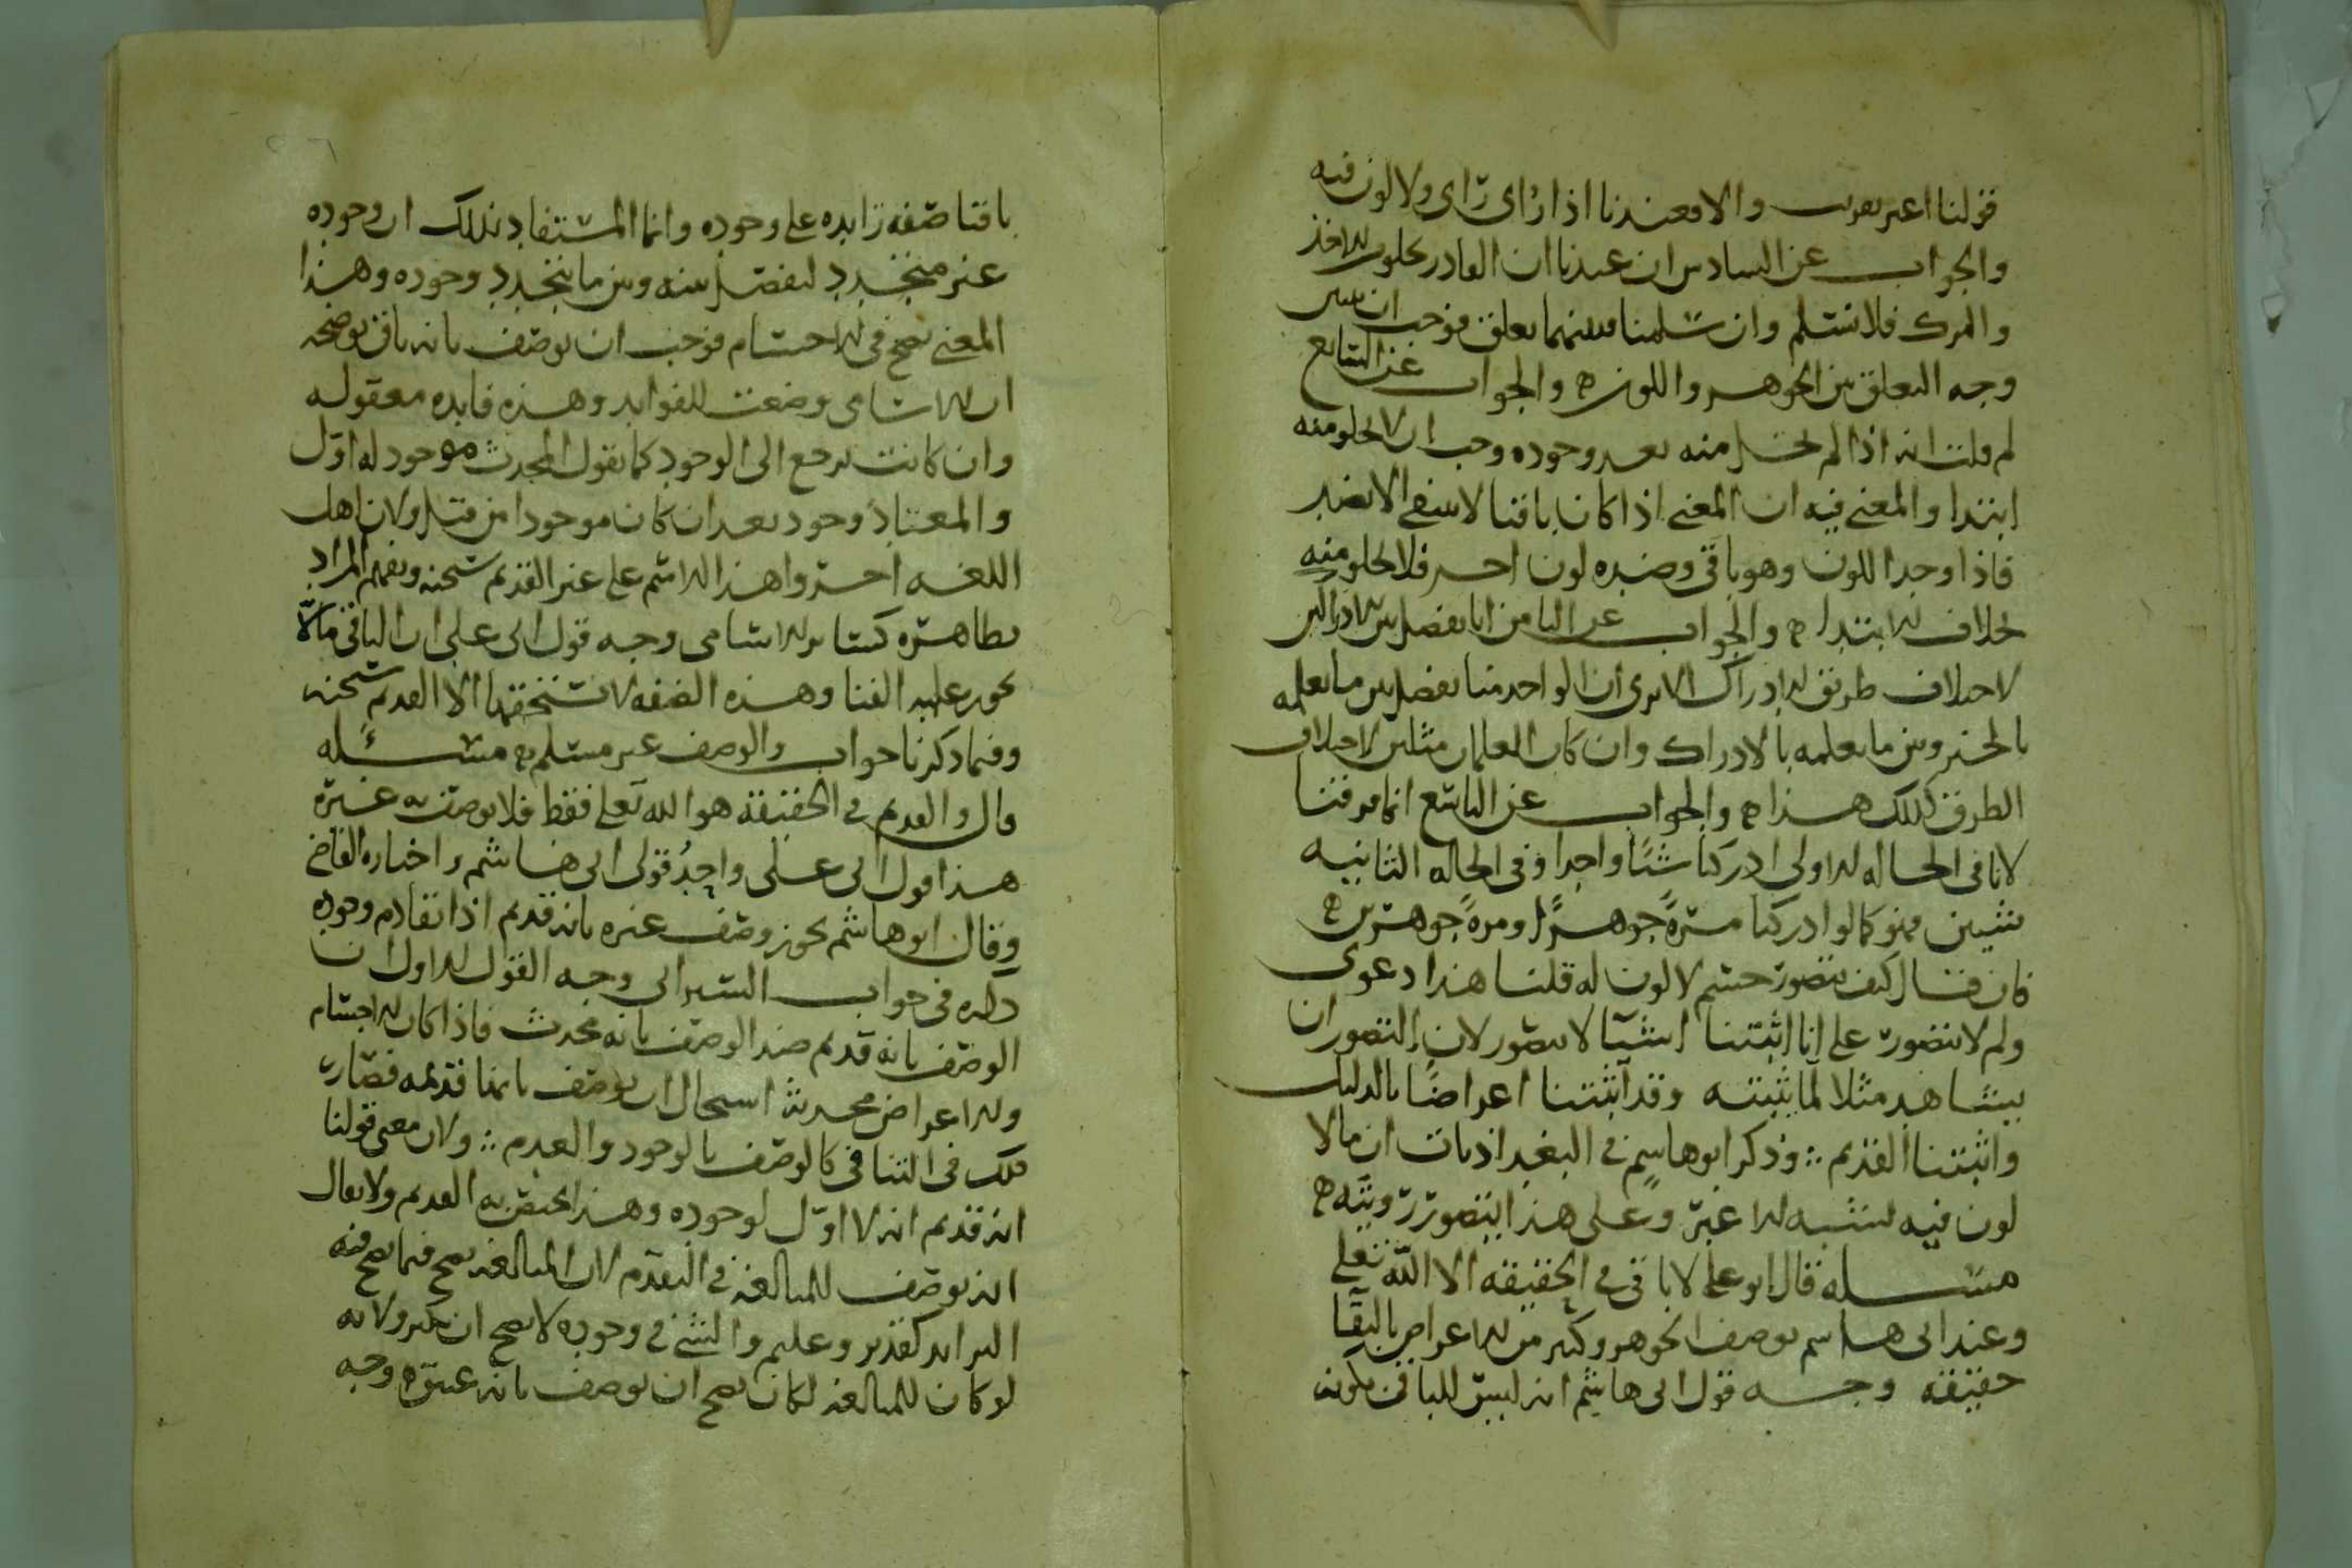 قولنا اغبر يعرف والا فعندنا اذا رأى رأى ولا لون فيه
والجواب عن السادس ان عندنا ان القادر يخلو من الاخذ
والترك فلا نسلم وان سلمنا فبينهما تعلق فوجب ان نبين
وجه التعلق بين الجوهر واللون ه والجواب عن السابع
لم قلت انه اذا لم يخل منه بعد وجوده وجب ان لا يخلو منه
ابتدا والمعنى فيه ان المعنى اذا كان باقيا لا ينتفى الا بضد
فاذا وجد اللون وهو باقى وضده لون اخر فلا يخلو منه
بخلاف الابتدا ه والجواب عن الثامن انا نفصل بين الادراكين
لاختلاف طريق الادراك الا ترى ان الواحد منا يفصل بين ما يعلمه
بالخبر وبين ما يعلمه بالادراك وان كان العلمان مثلين لاختلاف
الطرق كذلك هذا ه والجواب عن التاسع انما فرقنا
لانا فى الحاله الاولى ادركنا شيئا واحدا وفى الحاله الثانيه
شيئين فهو كما لو ادركنا مرةً جوهرًا ومرةً جوهرين ه
فان قال كيف يتصور جسم لا لون له قلنا هذا دعوى
ولم لا يتصور على انا اثبتنا اشيآ لا تتصور لان التصور ان
يشاهد مثلا لما يثبته وقد اثبتنا اعراضًا بالدليل
واثبتنا القديم ؞ وذكر ابو هاشم فى البغداديات ان ما لا
لون فيه يشبه الاغبر وعلى هذا يتصور رويته ه
مسله قال ابو على لا باقى فى الحقيقه الا الله تعلى
وعند ابى هاشم يوصف الجوهر وكثير من الاعراض بالبقآ
حقيقه وجه قول ابى هاشم انه ليس للباقى بكونه
باقيا صفه زايده على وجوده وانما المستفاد بذلك ان وجوده
غير متجدد ليفصل بينه وبين ما يتجدد وجوده وهذا
المعنى يصح فى الاجسام فوجب ان يوصف بانه باق يوضحه
ان الاسامى وضعت للفوايد وهذه فايده معقوله
وان كانت ترجع الى الوجود كما نقول المحدث موجود له اول
والمعتاد وجود بعد ان كان موجودا من قبل ولان اهل
اللغه اجروا هذا الاسم على غير القديم سبحنه ويفهم المراد
بظاهره كساير الاسامى وجه قول ابى على ان الباقى ما لا
يجوز عليه الفنا وهذه الصفه لا يستحقها الا القديم سبحنه
وفيما ذكرنا جواب والوصف غير مسلم ه مسئله
قال والقديم فى الحقيقه هو الله تعلى فقط فلا يوصف به غيره
هذا قول ابى على واحد قولى ابى هاشم واختاره القاضى
وقال ابو هاشم يجوز وصف غيره بانه قديم اذا تقادم وجوده
ذكره فى جواب السيرافى وجه القول الاول ان
الوصف بانه قديم ضد الوصف بانه محدث فاذا كان الاجسام
والاعراض محدثه استحال ان يوصف بانها قديمه فصار
ذلك فى التنافى كالوصف بالوجود والعدم ؞ ولان معنى قولنا
انه قديم انه لا اول لوجوده وهذا يختص به القديم ولا يقال
انه يوصف للمبالغه فى التقدم لان المبالغه تصح فيما يصح فيه
التزايد كقدير وعليم والشى فى وجوده لا يصح ان يكثر ولانه
لو كان للمبالغه لكان يصح ان يوصف بانه عتيق ه وجه